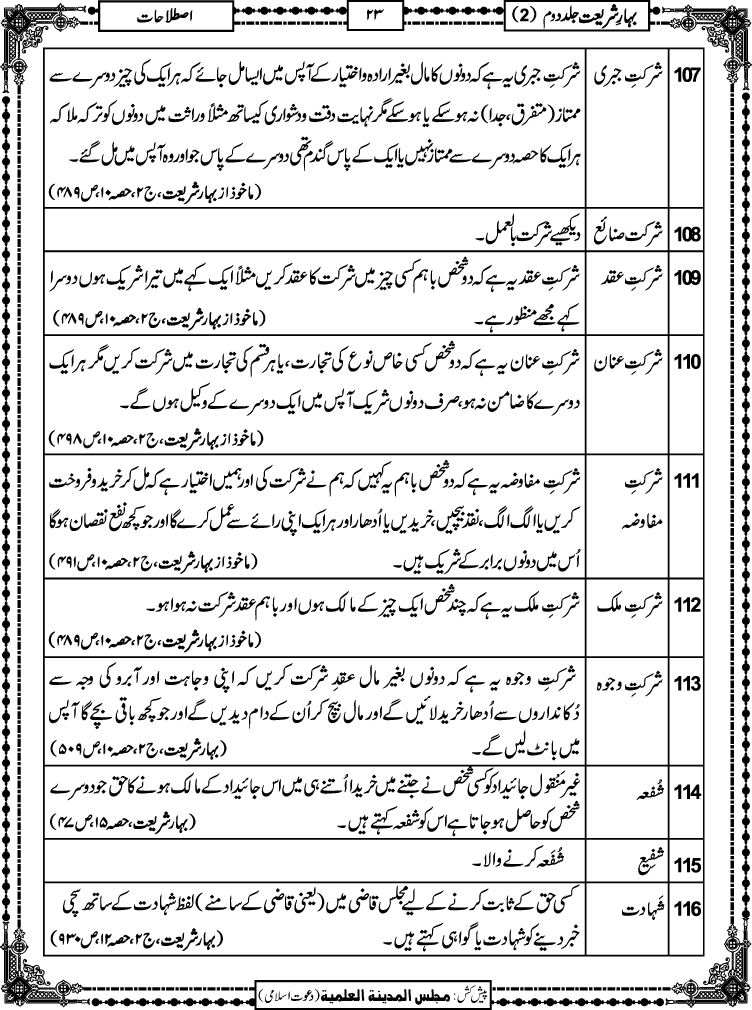 بہارِ شریعت جلد دوم (2)
۲۳
اصطلاحات
107 شرکتِ جبری شرکتِ جبری یہ ہے کہ دونوں کا مال بغیر ارادہ و اختیار کے آپس میں ایسا مل جائے کہ ہر ایک کی چیز دوسرے سے
ممتاز (متفرق، جدا) نہ ہو سکے یا ہو سکے مگر نہایت دقت و دشواری کیساتھ مثلاً وراثت میں دونوں کو ترکہ ملا کہ
ہر ایک کا حصہ دوسرے سے ممتاز نہیں یا ایک کے پاس گندم تھی دوسرے کے پاس جو اور وہ آپس میں مل گئے۔
(ماخوذ از بہار شریعت، ج۲، حصہ۱۰، ص۴۸۹)
108 شرکت صنائع دیکھیے شرکت بالعمل۔
109 شرکتِ عقد شرکتِ عقد یہ ہے کہ دو شخص باہم کسی چیز میں شرکت کا عقد کریں مثلاً ایک کہے میں تیرا شریک ہوں دوسرا
کہے مجھے منظور ہے۔ (ماخوذ از بہار شریعت، ج۲، حصہ۱۰، ص۴۸۹)
110 شرکتِ عنان شرکتِ عنان یہ ہے کہ دو شخص کسی خاص نوع کی تجارت، یا ہر قسم کی تجارت میں شرکت کریں مگر ہر ایک
دوسرے کا ضامن نہ ہو، صرف دونوں شریک آپس میں ایک دوسرے کے وکیل ہوں گے۔
(ماخوذ از بہار شریعت، ج۲، حصہ۱۰، ص۴۹۸)
111 شرکتِ شرکتِ مفاوضہ یہ ہے کہ دو شخص باہم یہ کہیں کہ ہم نے شرکت کی اور ہمیں اختیار ہے کہ مل کر خرید و فروخت
مفاوضہ کریں یا الگ الگ، نقد بیچیں، خریدیں یا اُدھار اور ہر ایک اپنی رائے سے عمل کرے گا اور جو کچھ نفع نقصان ہوگا
اُس میں دونوں برابر کے شریک ہیں۔ (ماخوذ از بہار شریعت، ج۲، حصہ۱۰، ص۴۹۱)
112 شرکتِ ملک شرکتِ ملک یہ ہے کہ چند شخص ایک چیز کے مالک ہوں اور باہم عقد شرکت نہ ہوا ہو۔
(ماخوذ از بہار شریعت، ج۲، حصہ۱۰، ص۴۸۹)
113 شرکتِ وجوہ شرکتِ وجوہ یہ ہے کہ دونوں بغیر مال عقدِ شرکت کریں کہ اپنی وجاہت اور آبرو کی وجہ سے
دُکانداروں سے اُدھار خرید لائیں گے اور مال بیچ کر اُن کے دام دیدیں گے اور جو کچھ باقی بچے گا آپس
میں بانٹ لیں گے۔ (بہار شریعت، ج۲، حصہ۱۰، ص۵۰۹)
114 شُفعہ غیر مَنْقول جائیداد کو کسی شخص نے جتنے میں خریدا اُتنے ہی میں اس جائیداد کے مالک ہونے کا حق جو دوسرے
شخص کو حاصل ہو جاتا ہے اس کو شفعہ کہتے ہیں۔ (بہار شریعت، حصہ۱۵، ص۴۷)
115 شَفِیع شُفَعہ کرنے والا۔
116 شَہادت کسی حق کے ثابت کرنے کے لیے مجلس قاضی میں (یعنی قاضی کے سامنے) لفظ شہادت کے ساتھ سچی
خبر دینے کو شہادت یا گواہی کہتے ہیں۔ (بہار شریعت، ج۲، حصہ۱۲، ص۹۳۰)
پیش کش: مجلس المدینة العلمیة (دعوت اسلامی)